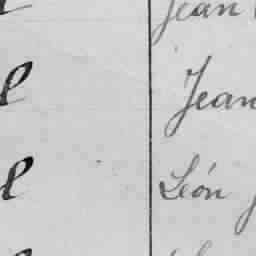 Jean
l Jean
l Léon